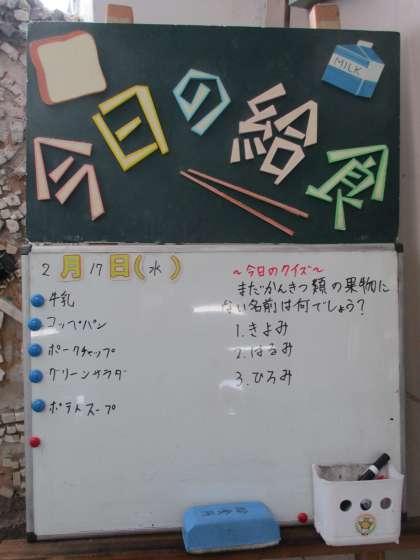 今日の給食
MILK
2月17日(水)
牛乳
コッペパン
ポークチャップ
グリーンサラダ
ポテトスープ
~今日のクイズ~
まだかんきつ類の果物に
ない名前は何でしょう?
1.きよみ
2.はるみ
3.ひろみ